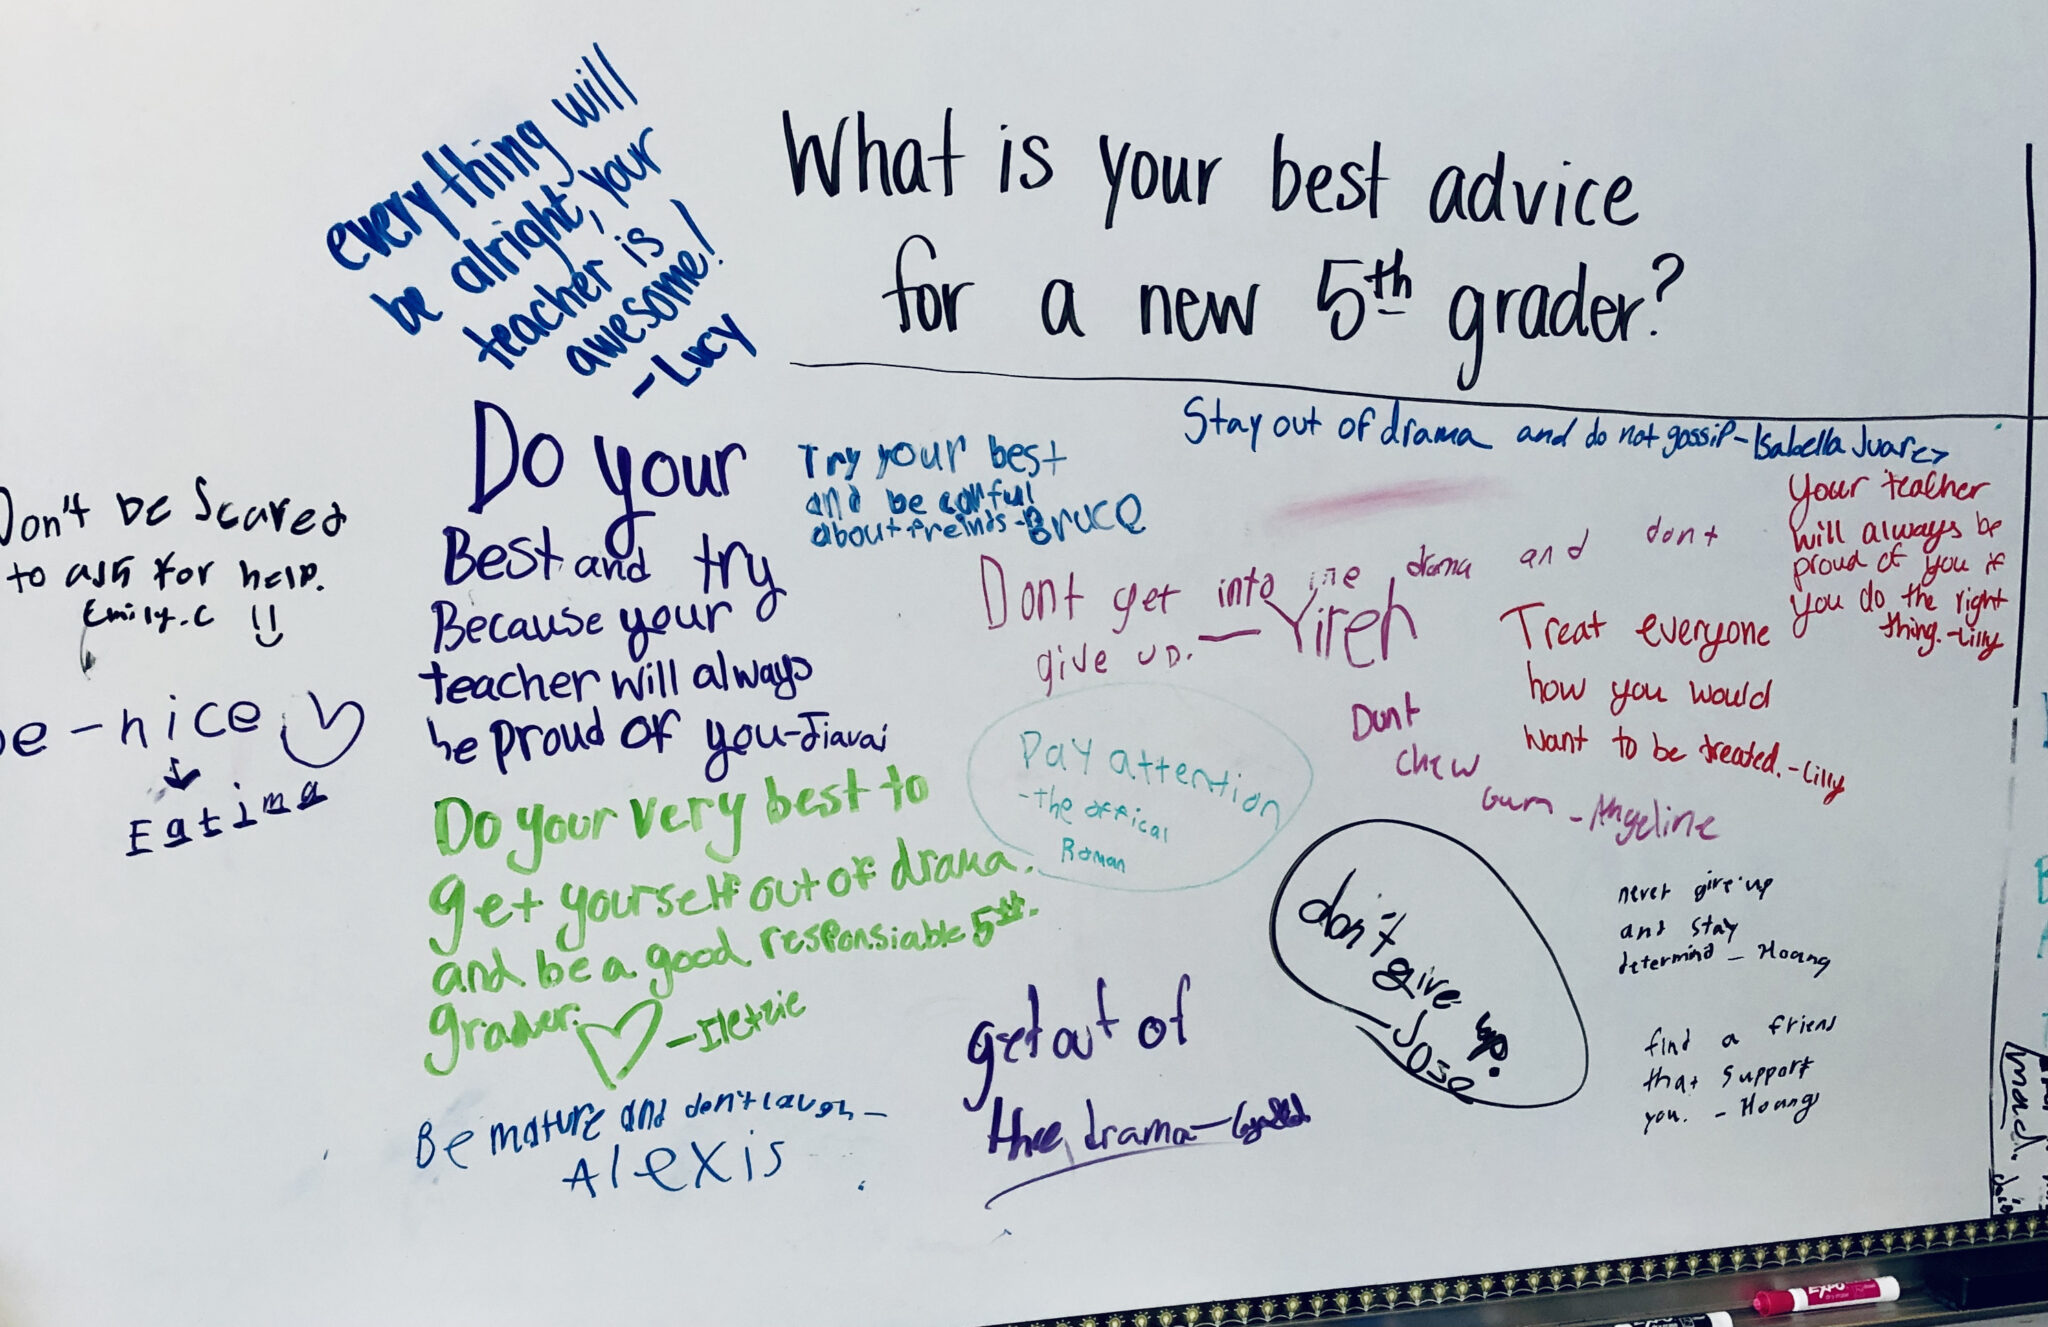 What is your best advice
for a new 5th grader?
everything will
be alright, your
teacher is
awesome!
-Lucy
Stay out of drama and do not gossip-Isabella Juarez
Do your
Best and try
Because your
teacher will always
be proud of you-Jiavai
Try your best
and be carful
about freinds-Bruce
Your teacher
will always be
proud of you if
you do the right
thing.-Lilly
Don't be Scared
to ask for help.
Emily.C
Dont get into the drama and dont
give up. — Yireh
Treat everyone
how you would
want to be treated.-Lilly
be-nice
Fatima
Pay attention
-the offical
Roman
Dont
chew
Gum -Angeline
Do your very best to
get yourself out of drama.
and be a good responsiable 5th.
grader. -Iletzie
don't give up.
-Jose
never give up
and stay
determind - Hoang
get out of
the drama-
find a friend
that support
you. - Hoang
Be mature and don't laugh-
Alexis
mad.
EXPO
EXPO